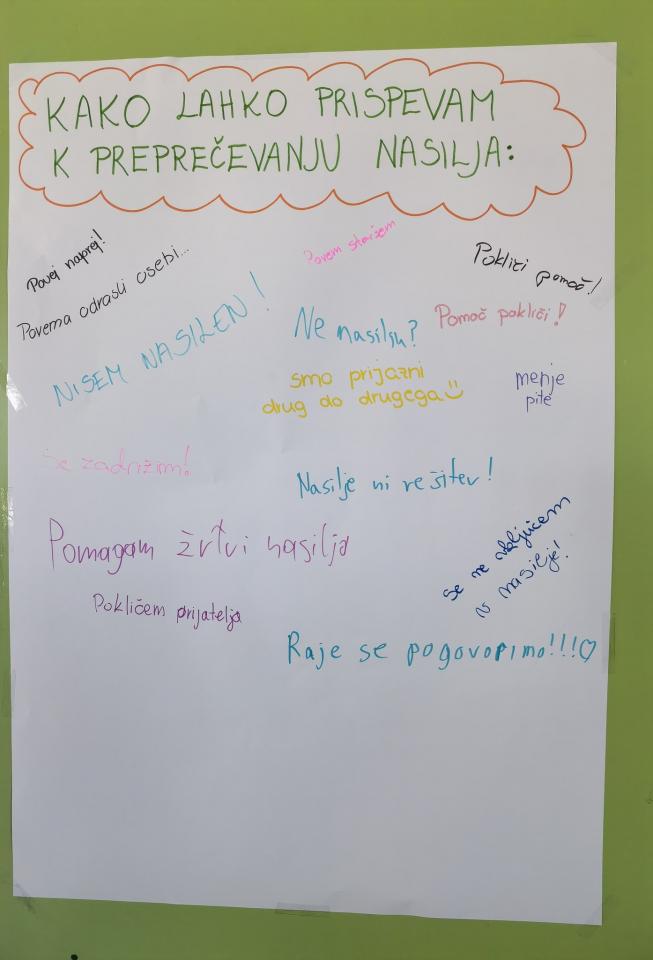 KAKO LAHKO PRISPEVAM
K PREPREČEVANJU NASILJA:
Povej naprej!
Povema odrasli osebi...
Povem staršem
Pokliči pomoč!
NISEM NASILEN!
Ne nasilju?
Pomoč pokliči!
smo prijazni
drug do drugega
menje
pite
Se zadržim!
Nasilje ni rešitev!
Pomagam žrtvi nasilja
se ne vključem
v nasilje!
Pokličem prijatelja
Raje se pogovorimo!!!♡